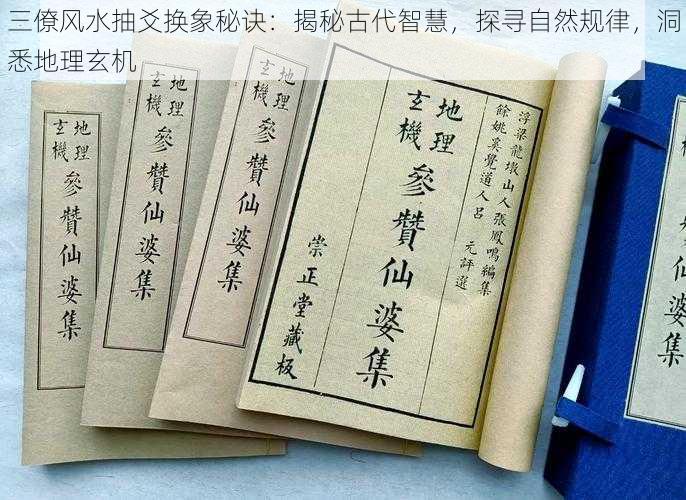 三僚风水抽爻换象秘诀：揭秘古代智慧，探寻自然规律，洞
悉地理玄机
地理
玄機
參贊仙婆集
地理
玄機
參贊仙婆集
地理
玄機
參贊仙婆集
浮梁龍墩山人張鳳鳴編集
餘姚奚覺道人呂 元評選
地理
玄機
參贊仙婆集
崇正堂藏板